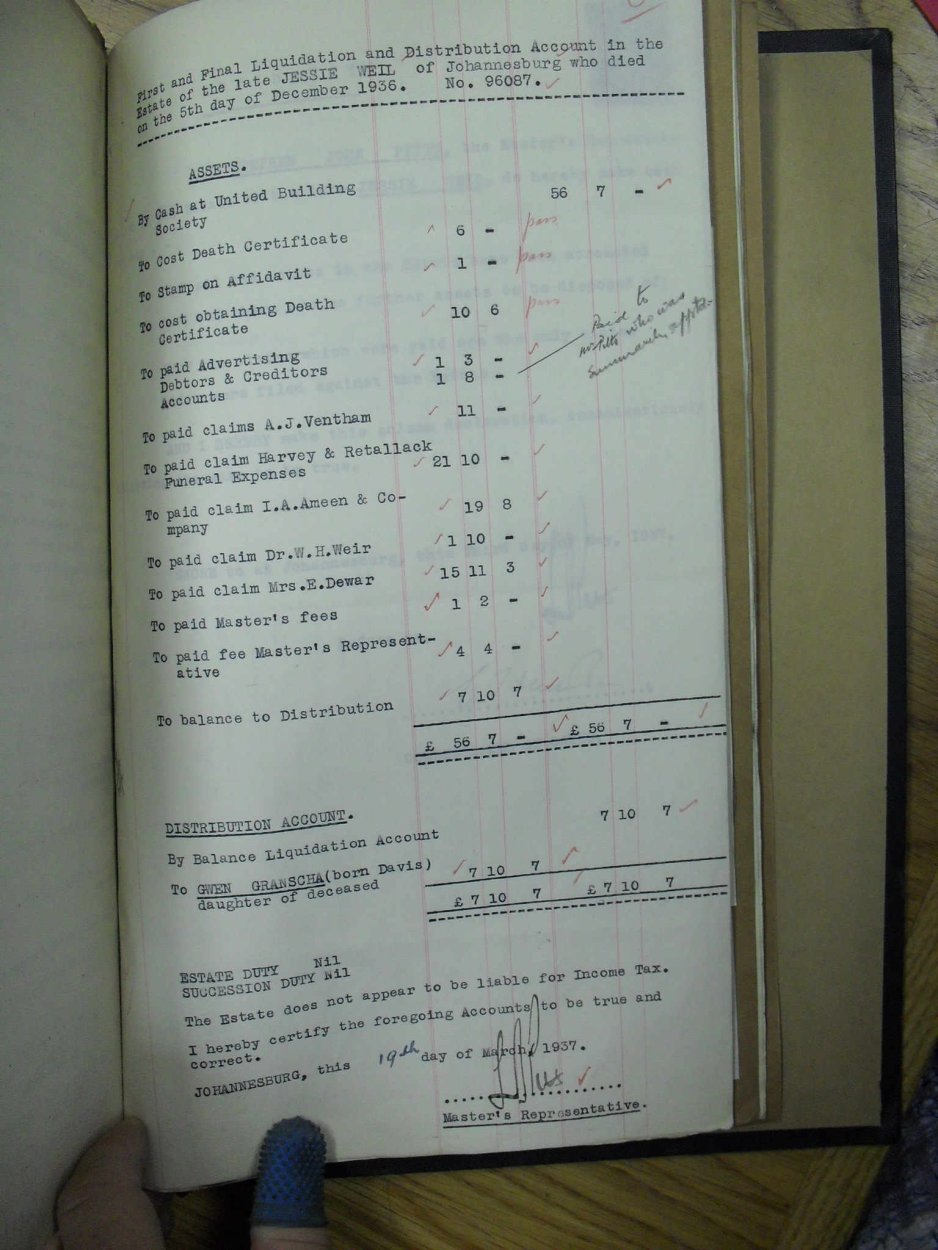 First and Final Liquidation and Distribution Account in the
Estate of the late JESSIE WEIL of Johannesburg who died
on the 5th day of December 1936. No. 96087.
ASSETS.
By Cash at United Building 56 7 -
Society
To Cost Death Certificate 6 - pass
To Stamp on Affidavit 1 - pass
To cost obtaining Death 10 6 pass
Certificate
To paid Advertising 1 3 -
Debtors & Creditors 1 8 -
Accounts
Paid to
who was
To paid claims A.J.Ventham 11 -
To paid claim Harvey & Retallack 21 10 -
Funeral Expenses
To paid claim I.A.Ameen & Co- 19 8
mpany
To paid claim Dr.W.H.Weir 1 10 -
To paid claim Mrs.E.Dewar 15 11 3
To paid Master's fees 1 2 -
To paid fee Master's Represent- 4 4 -
ative
To balance to Distribution 7 10 7
£ 56 7 - £ 56 7 -
DISTRIBUTION ACCOUNT.
By Balance Liquidation Account 7 10 7
To GWEN GRANSCHA(born Davis) 7 10 7
daughter of deceased
£ 7 10 7 £ 7 10 7
ESTATE DUTY Nil
SUCCESSION DUTY Nil
The Estate does not appear to be liable for Income Tax.
I hereby certify the foregoing Accounts to be true and
correct.
JOHANNESBURG, this 19th day of March, 1937.
Master's Representative.